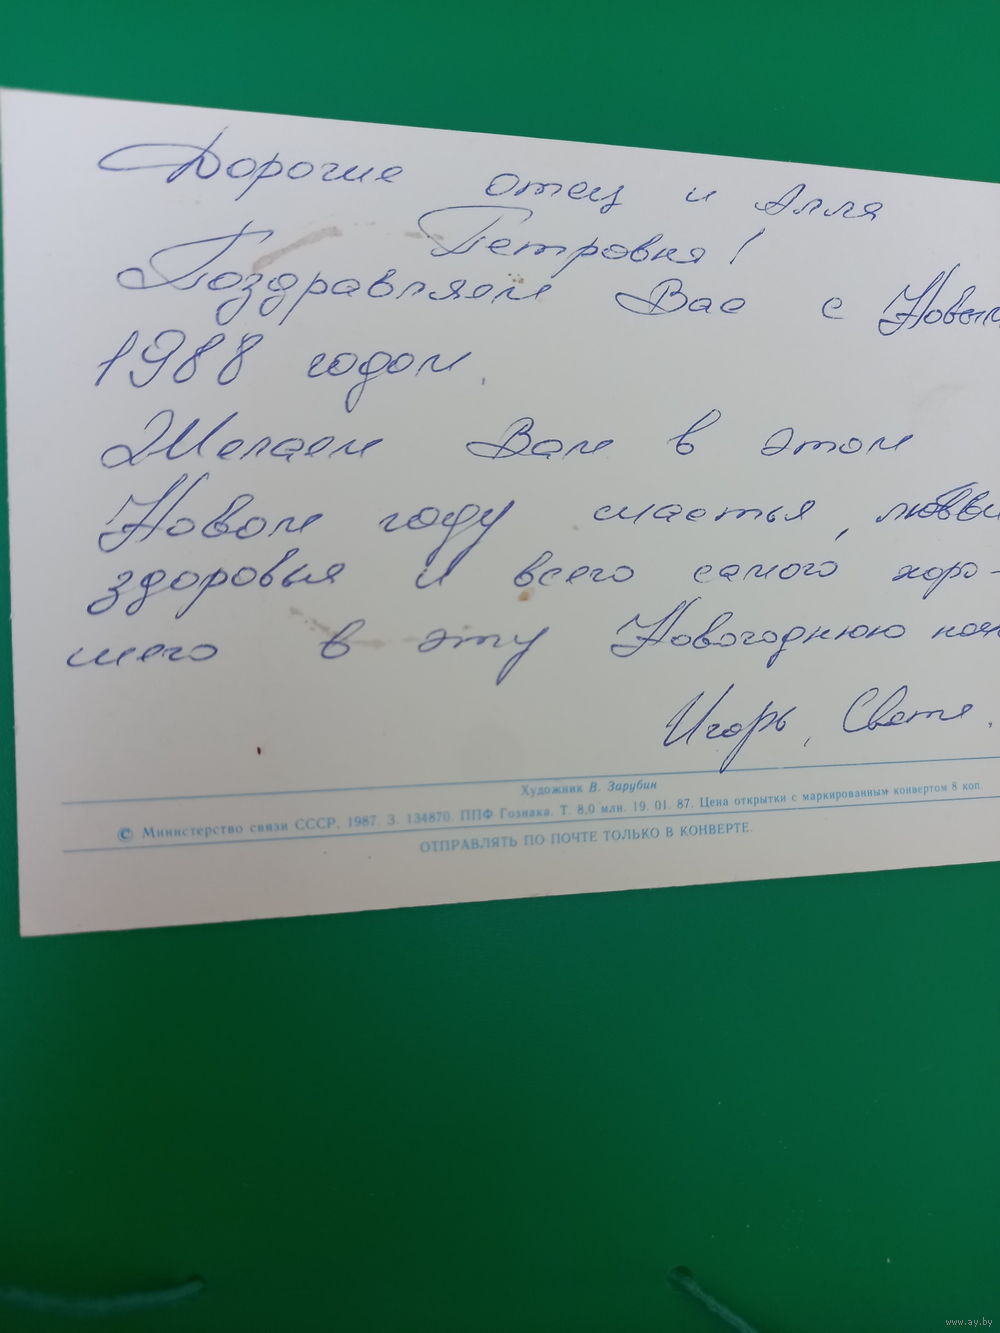 Дорогие отец и Алля
Петровна!
Поздравляем Вас с Новым
1988 годом.
Желаем Вам в этом
Новом году счастья, любви
здоровья и всего самого хоро-
шего в эту Новогоднюю ноч
Игорь, Света.
Художник В. Зарубин
© Министерство связи СССР, 1987. З. 134870. ППФ Гознака. Т. 8,0 млн. 19. 01. 87. Цена открытки с маркированным конвертом 8 коп.
ОТПРАВЛЯТЬ ПО ПОЧТЕ ТОЛЬКО В КОНВЕРТЕ.
www.ay.by